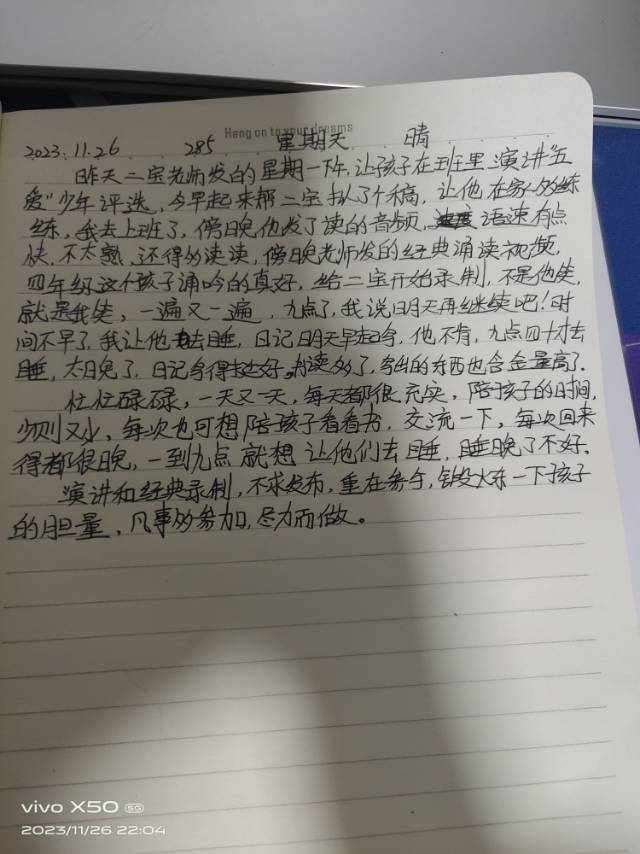 Hang on to your dreams
2023.11.26 285 星期天 晴
昨天二宝老师发的星期一下午,让孩子在班里演讲“五
爱”少年评选,今早起来帮二宝拟了个稿,让他在家多练
练,我去上班了,傍晚他发了读的音频,语速有点
快,不太熟,还得多读读,傍晚老师发的经典诵读视频,
四年级这个孩子诵吟的真好,给二宝开始录制,不是他笑,
就是我笑,一遍又一遍,九点了,我说明天再继续吧!时
间不早了,我让他去睡,日记明天早起写,他不肯,九点四十才去
睡,太晚了,日记写得挺好,书读多了,写出的东西也含金量高了.
忙忙碌碌,一天又一天,每天都很充实,陪孩子的时间,
少则又少,每次也可想陪孩子看看书,交流一下,每次回来
得都很晚,一到九点就想让他们去睡,睡晚了不好.
演讲和经典录制,不求发布,重在参与,锻炼一下孩子
的胆量,凡事多参加,尽力而做。
vivo X50 5G
2023/11/26 22:04